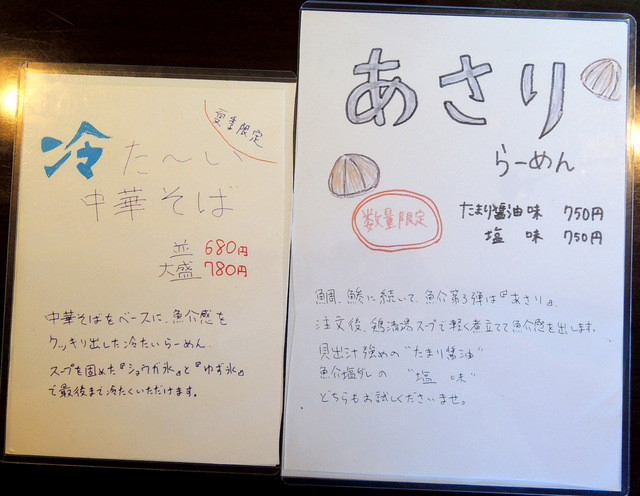 夏季限定
冷た〜い
中華そば
並 680円
大盛 780円
中華そばをベースに、魚介感を
クッキリ出した冷たいらーめん。
スープを固めた『ショウガ氷』と『ゆず氷』
で最後まで冷たくいただけます。
あさり
らーめん
数量限定
たまり醤油味 750円
塩 味 750円
鯛、鯵に続いて、魚介第3弾は『あさり』。
注文後、鶏清湯スープで軽く煮立てて魚介感を出します。
貝出汁強めの "たまり醤油"
魚介塩ダレの "塩 味"
どちらもお試しくださいませ。